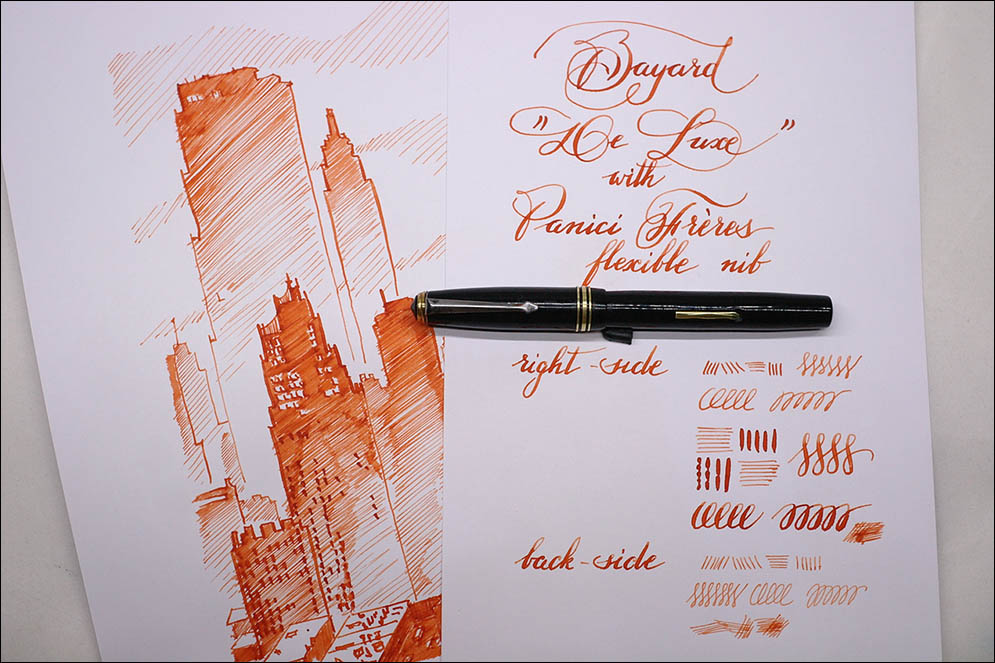 Bayard
"De Luxe"
with
Panici Frères
flexible nib
right-side
back-side